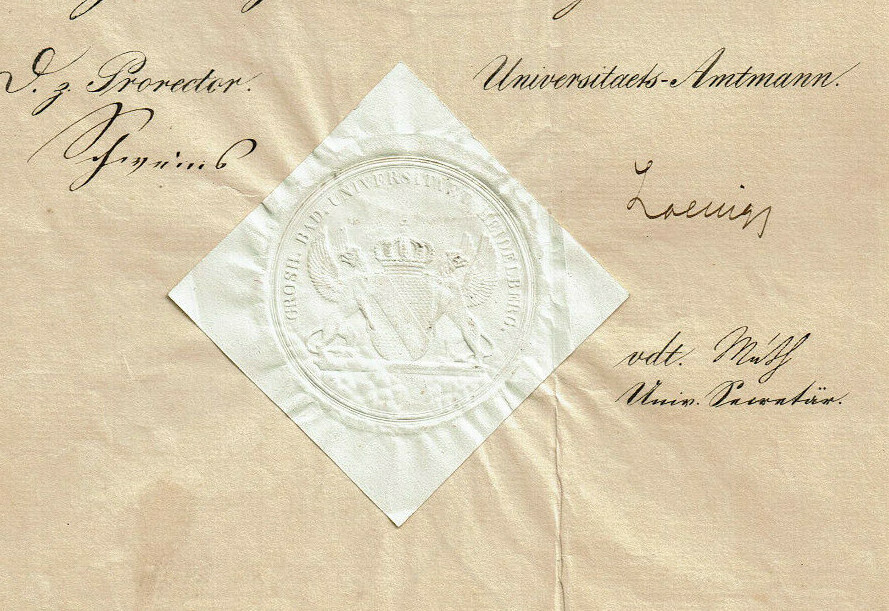 D. z. Prorector.
Universitaets-Amtmann.
GROSH. BAD. UNIVERSITAET HEIDELBERG.
vdt.
Univ. Secretär.